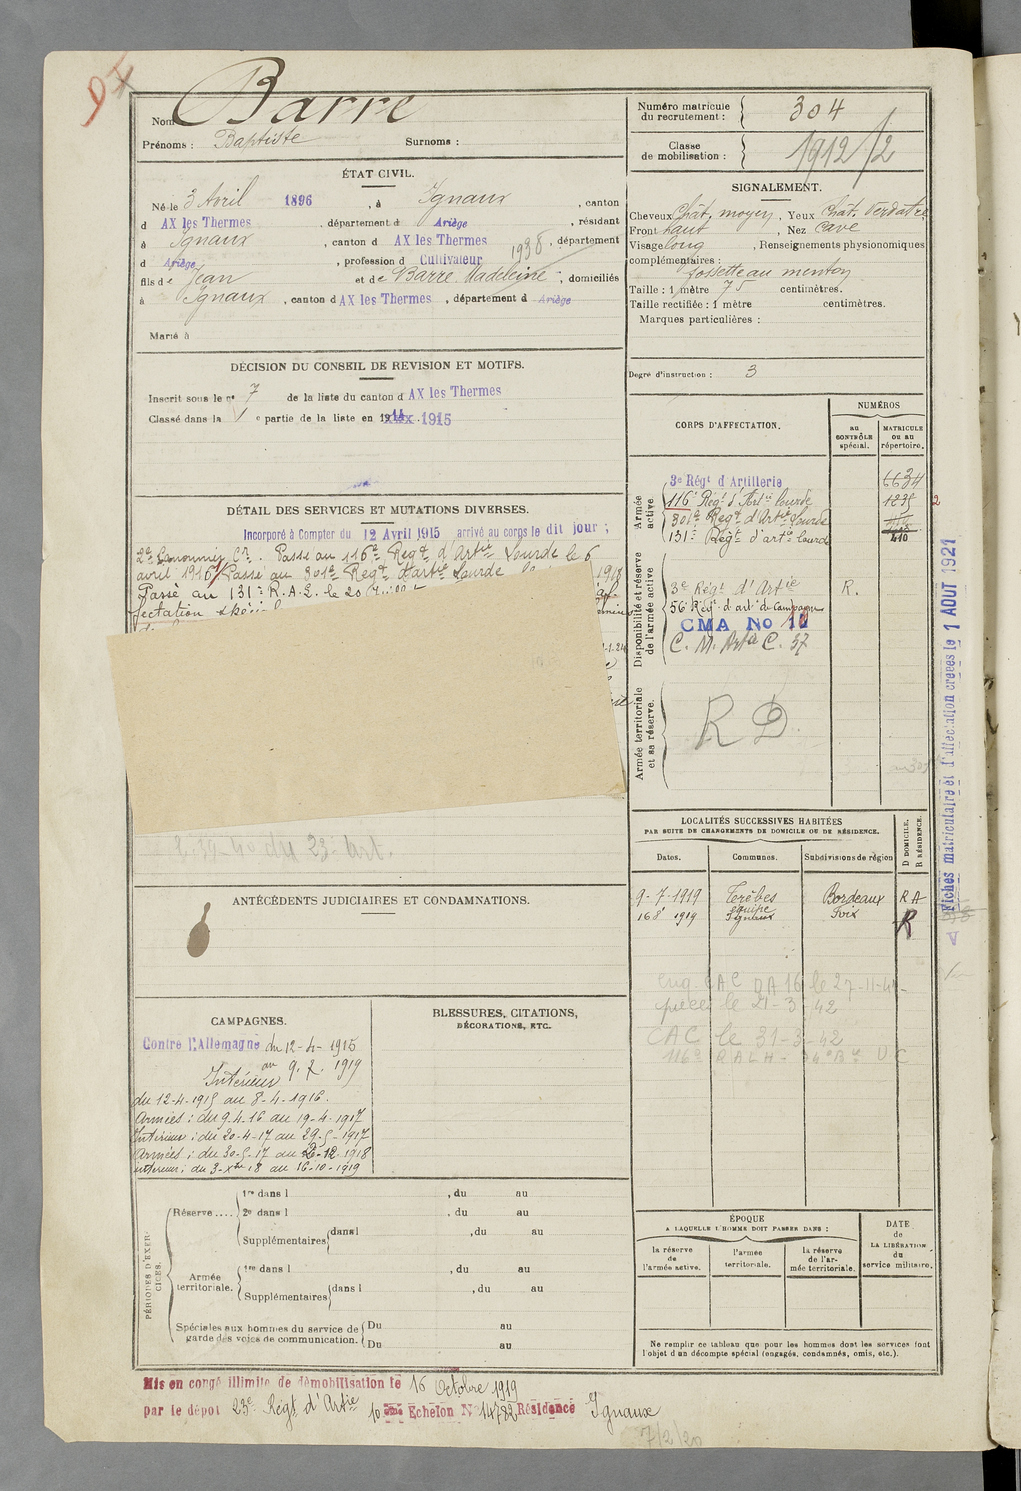 Nom Barre
Prénoms : Baptiste Surnoms :
Numéro matricule du recrutement : 304
Classe de mobilisation : 1912/2
ÉTAT CIVIL.
Né le 3 Avril 1896, à Ignaux, canton
d AX les Thermes, département d Ariège, résidant
à Ignaux, canton d AX les Thermes, département
1938
d Ariège, profession d Cultivateur
fils de Jean et de Barre Madeleine, domiciliés
à Ignaux, canton d AX les Thermes, département d Ariège
Marié à
SIGNALEMENT.
Cheveux Chât. moyen, Yeux Chât. Verdatre
Front haut, Nez Cave
Visage long, Renseignements physionomiques
complémentaires :
fossette au menton
Taille : 1 mètre 75 centimètres.
Taille rectifiée : 1 mètre centimètres.
Marques particulières :
Degré d'instruction : 3
DÉCISION DU CONSEIL DE REVISION ET MOTIFS.
Inscrit sous le n° 7 de la liste du canton d AX les Thermes
Classé dans la 1 e partie de la liste en 1915
DÉTAIL DES SERVICES ET MUTATIONS DIVERSES.
Incorporé à Compter du 12 Avril 1915 arrivé au corps le dit jour ;
2e Canonnier Cr. Passé au 116e Regt d'Artie Lourde le 6
avril 1916 Passé au 301e Regt d'artie Lourde
Passé au 131e R.A.L. le 20
fectation
2-39-40 du 23e Art.
CORPS D'AFFECTATION.
NUMÉROS
AU CONTRÔLE spécial.
MATRICULE OU AU répertoire.
Armée active
3e Régt d'Artillerie 6634
116e Regt d'Artie Lourde 1235
301e Regt d'Artie Lourde
131e Regt d'artie Lourde 410
Disponibilité et réserve de l'armée active
3e Regt d'Artie R.
56e Regt d'art de Campagne
CMA No
C. M. Artie C. 37
Armée territoriale et sa réserve.
R D
Fiches matriculaire et d'affectation créées le 1 AOUT 1921
LOCALITÉS SUCCESSIVES HABITÉES
PAR SUITE DE CHANGEMENTS DE DOMICILE OU DE RÉSIDENCE.
Dates. Communes. Subdivisions de région D DOMICILE. R RÉSIDENCE.
9-7-1919 Bordeaux R A
1919 Ignaux Foix R
eng. CAC DA 16 le 27-11-41
le 21-3-42
CAC le 31-3-42
116e RALH
ANTÉCÉDENTS JUDICIAIRES ET CONDAMNATIONS.
CAMPAGNES.
Contre l'Allemagne du 12-4-1915
au 9.7.1919
Intérieur
du 12-4-1915 au 8-4-1916.
Armées : du 9.4.16 au 19-4-1917
Intérieur : du 20-4-17 au 29-5-1917
Armées : du 30-5-17 au 2-12-1918
Intérieur : du 3-Xbre 18 au 16-10-1919
BLESSURES, CITATIONS,
DÉCORATIONS, ETC.
PÉRIODES D'EXERCICES.
Réserve ....
1re dans l , du au
2e dans l , du au
Supplémentaires dans l , du au
Armée territoriale.
1re dans l , du au
Supplémentaires dans l , du au
Spéciales aux hommes du service de garde des voies de communication.
Du au
Du au
ÉPOQUE
A LAQUELLE L'HOMME DOIT PASSER DANS :
la réserve de l'armée active.
l'armée territoriale.
la réserve de l'armée territoriale.
DATE de LA LIBÉRATION du service militaire.
Ne remplir ce tableau que pour les hommes dont les services font
l'objet d'un décompte spécial (engagés, condamnés, omis, etc.).
Mis en congé illimité de démobilisation le 16 Octobre 1919
par le dépôt 23e Regt d'Artie 10 ème Echelon N° 14782 Résidence Ignaux
7/2/20